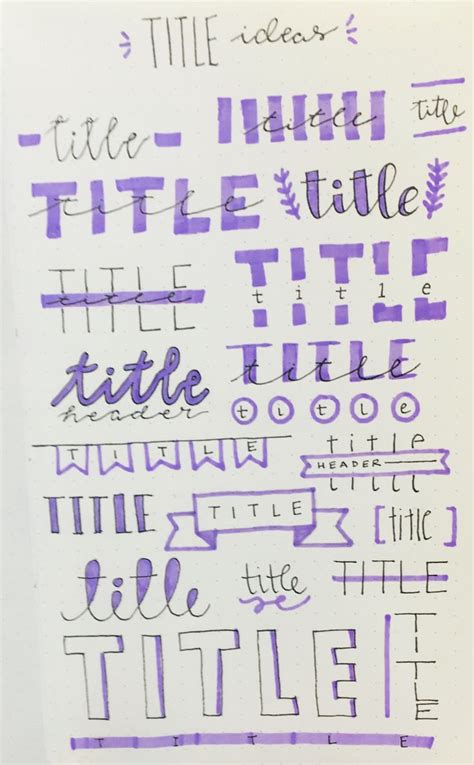 TITLE ideas
title
title
title
TITLE
title
title
TITLE
title
TITLE
title
title
header
TITLE
title
title
TITLE
title
HEADER
TITLE
TITLE
[title]
title
title
TITLE
TITLE
TITLE
TITLE